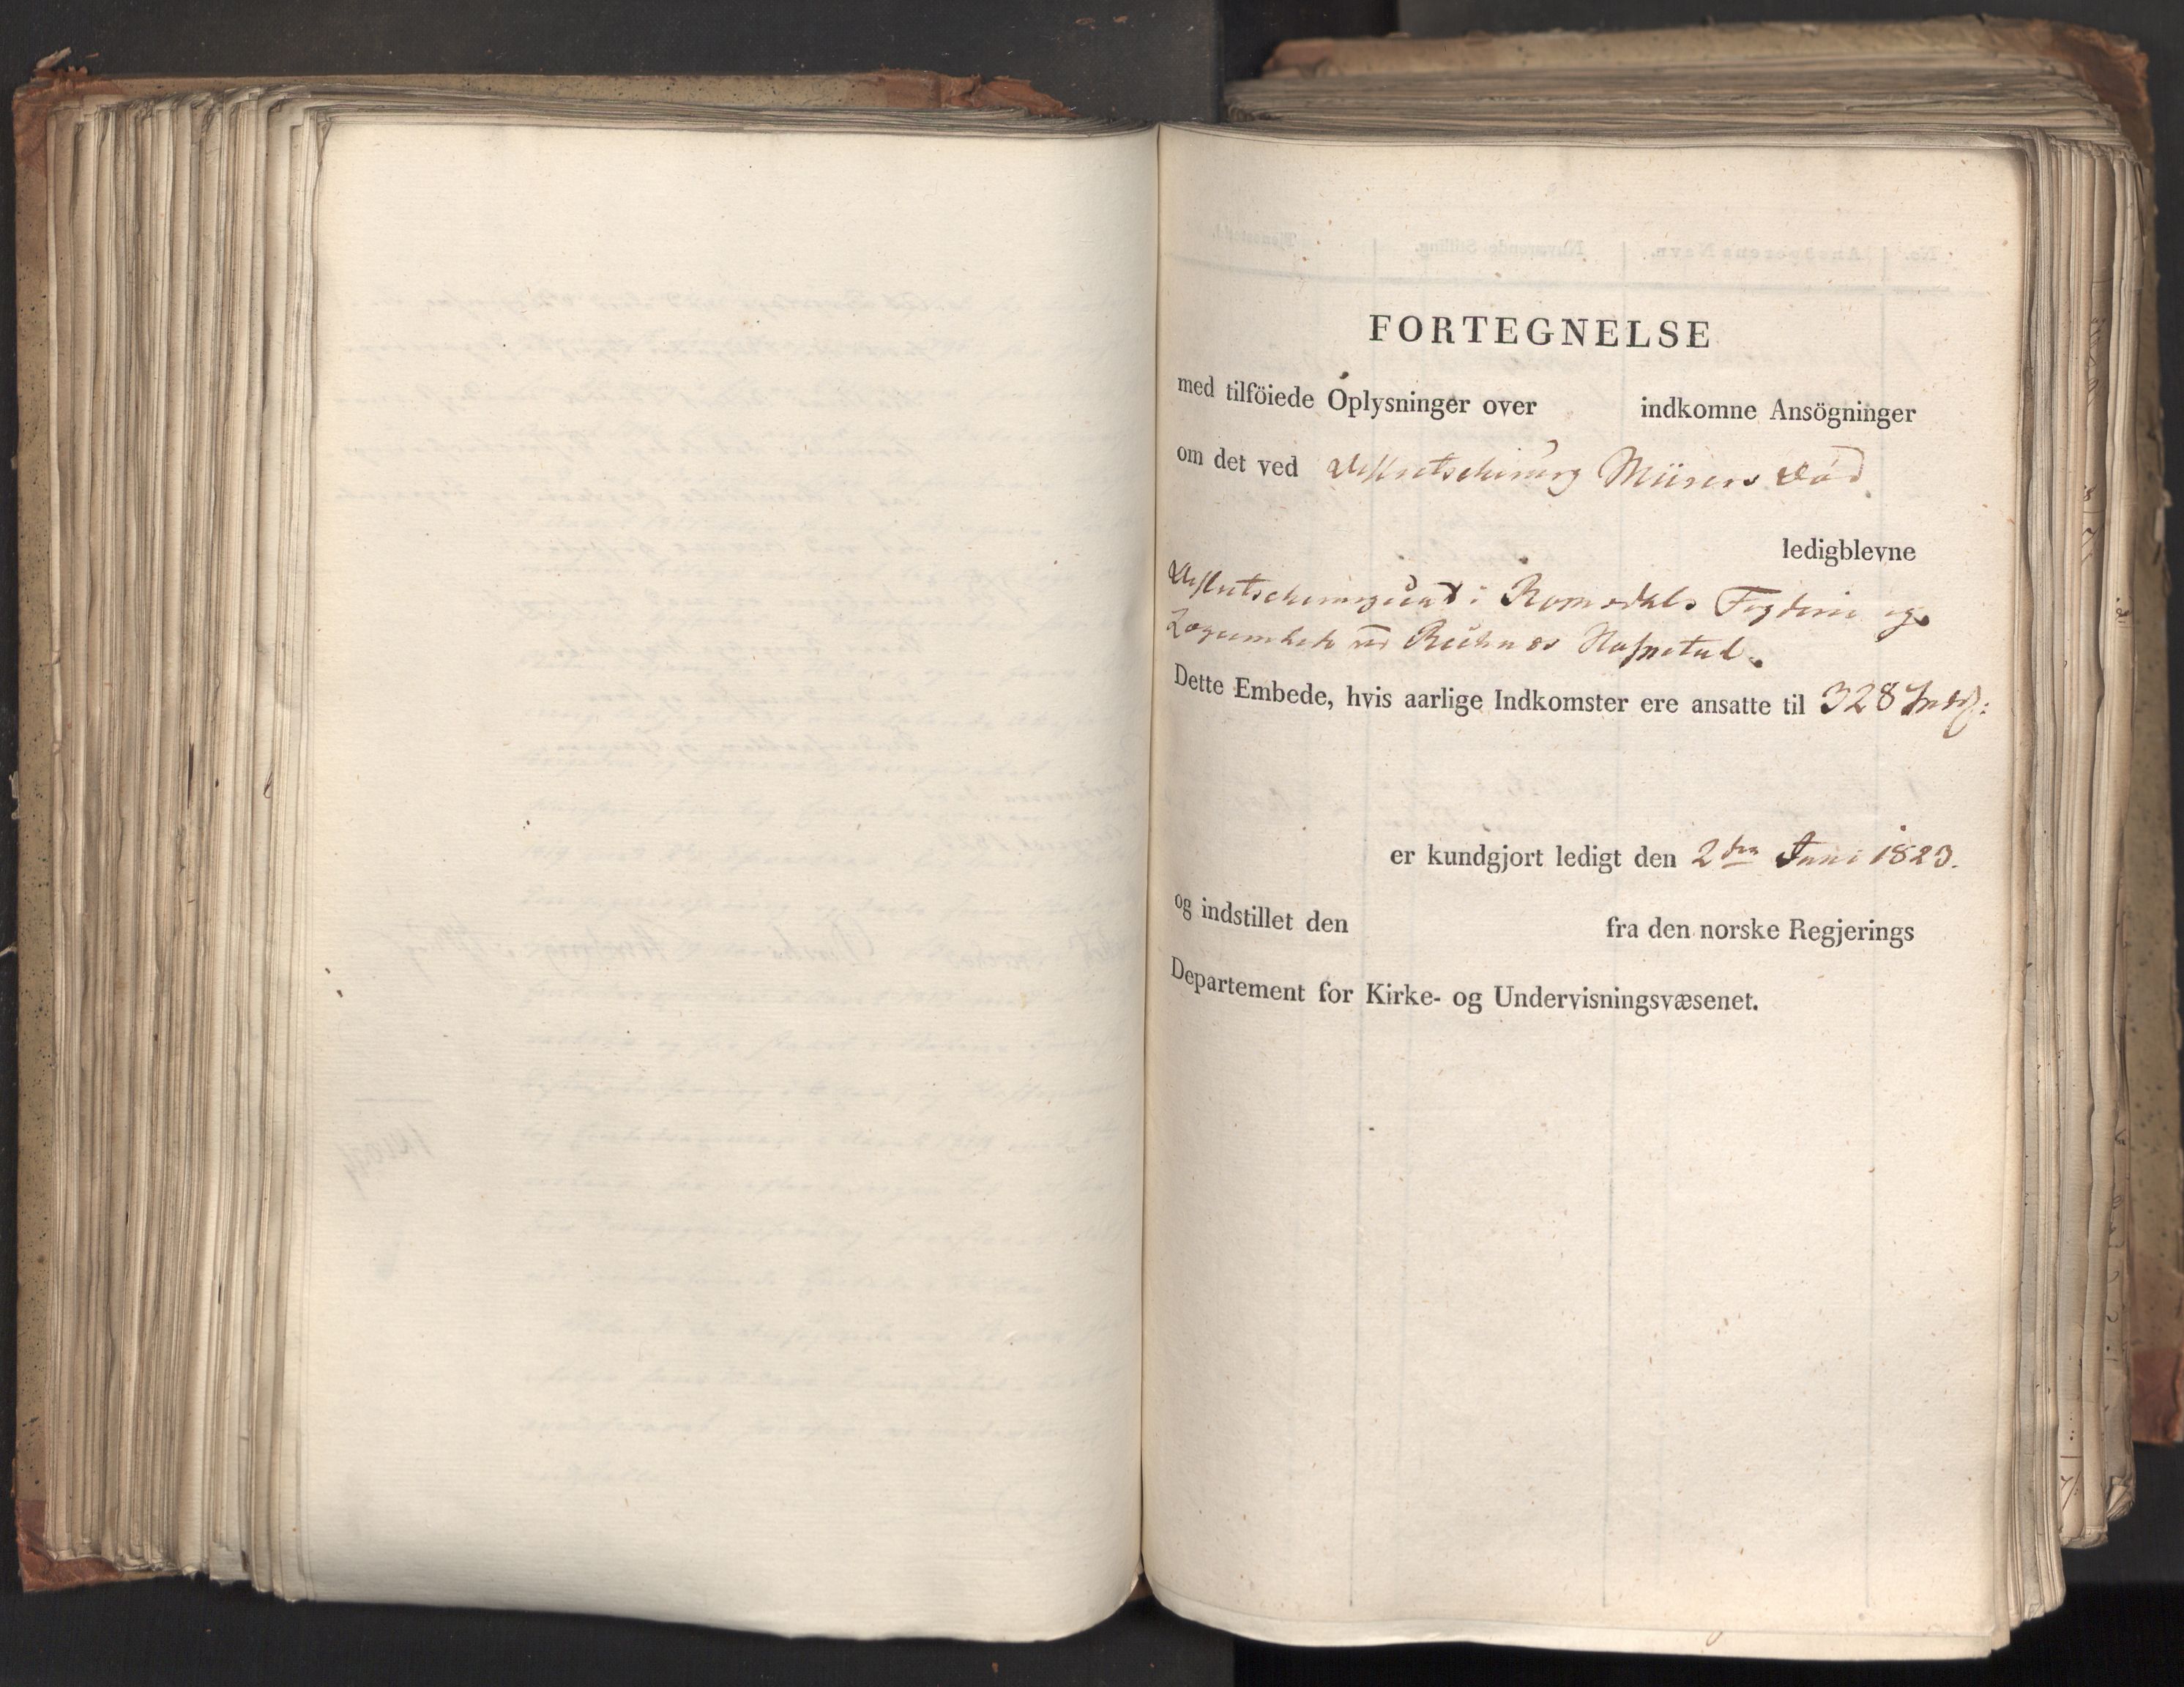 FORTEGNELSE
med tilföiede Oplysninger over indkomne Ansögninger
om det ved Distrctschirurg Müsers Död
ledigblevne
Districtschirurgicat i Romsdals Fogderie og
Lægeembede ved Reknes Hospital.
Dette Embede, hvis aarlige Indkomster ere ansatte til 328
er kundgjort ledigt den 2den Juni 1823.
og indstillet den fra den norske Regjerings
Departement for Kirke- og Undervisningsvæsenet.